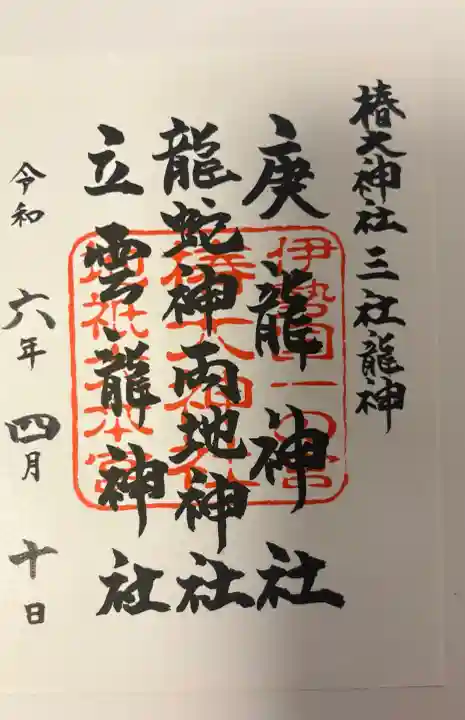 椿大神社三社龍神
庚龍神社
龍蛇神両地神社
立雲龍神社
令和六年四月十日
伊勢国一の宮
椿大神社
地祇大本宮